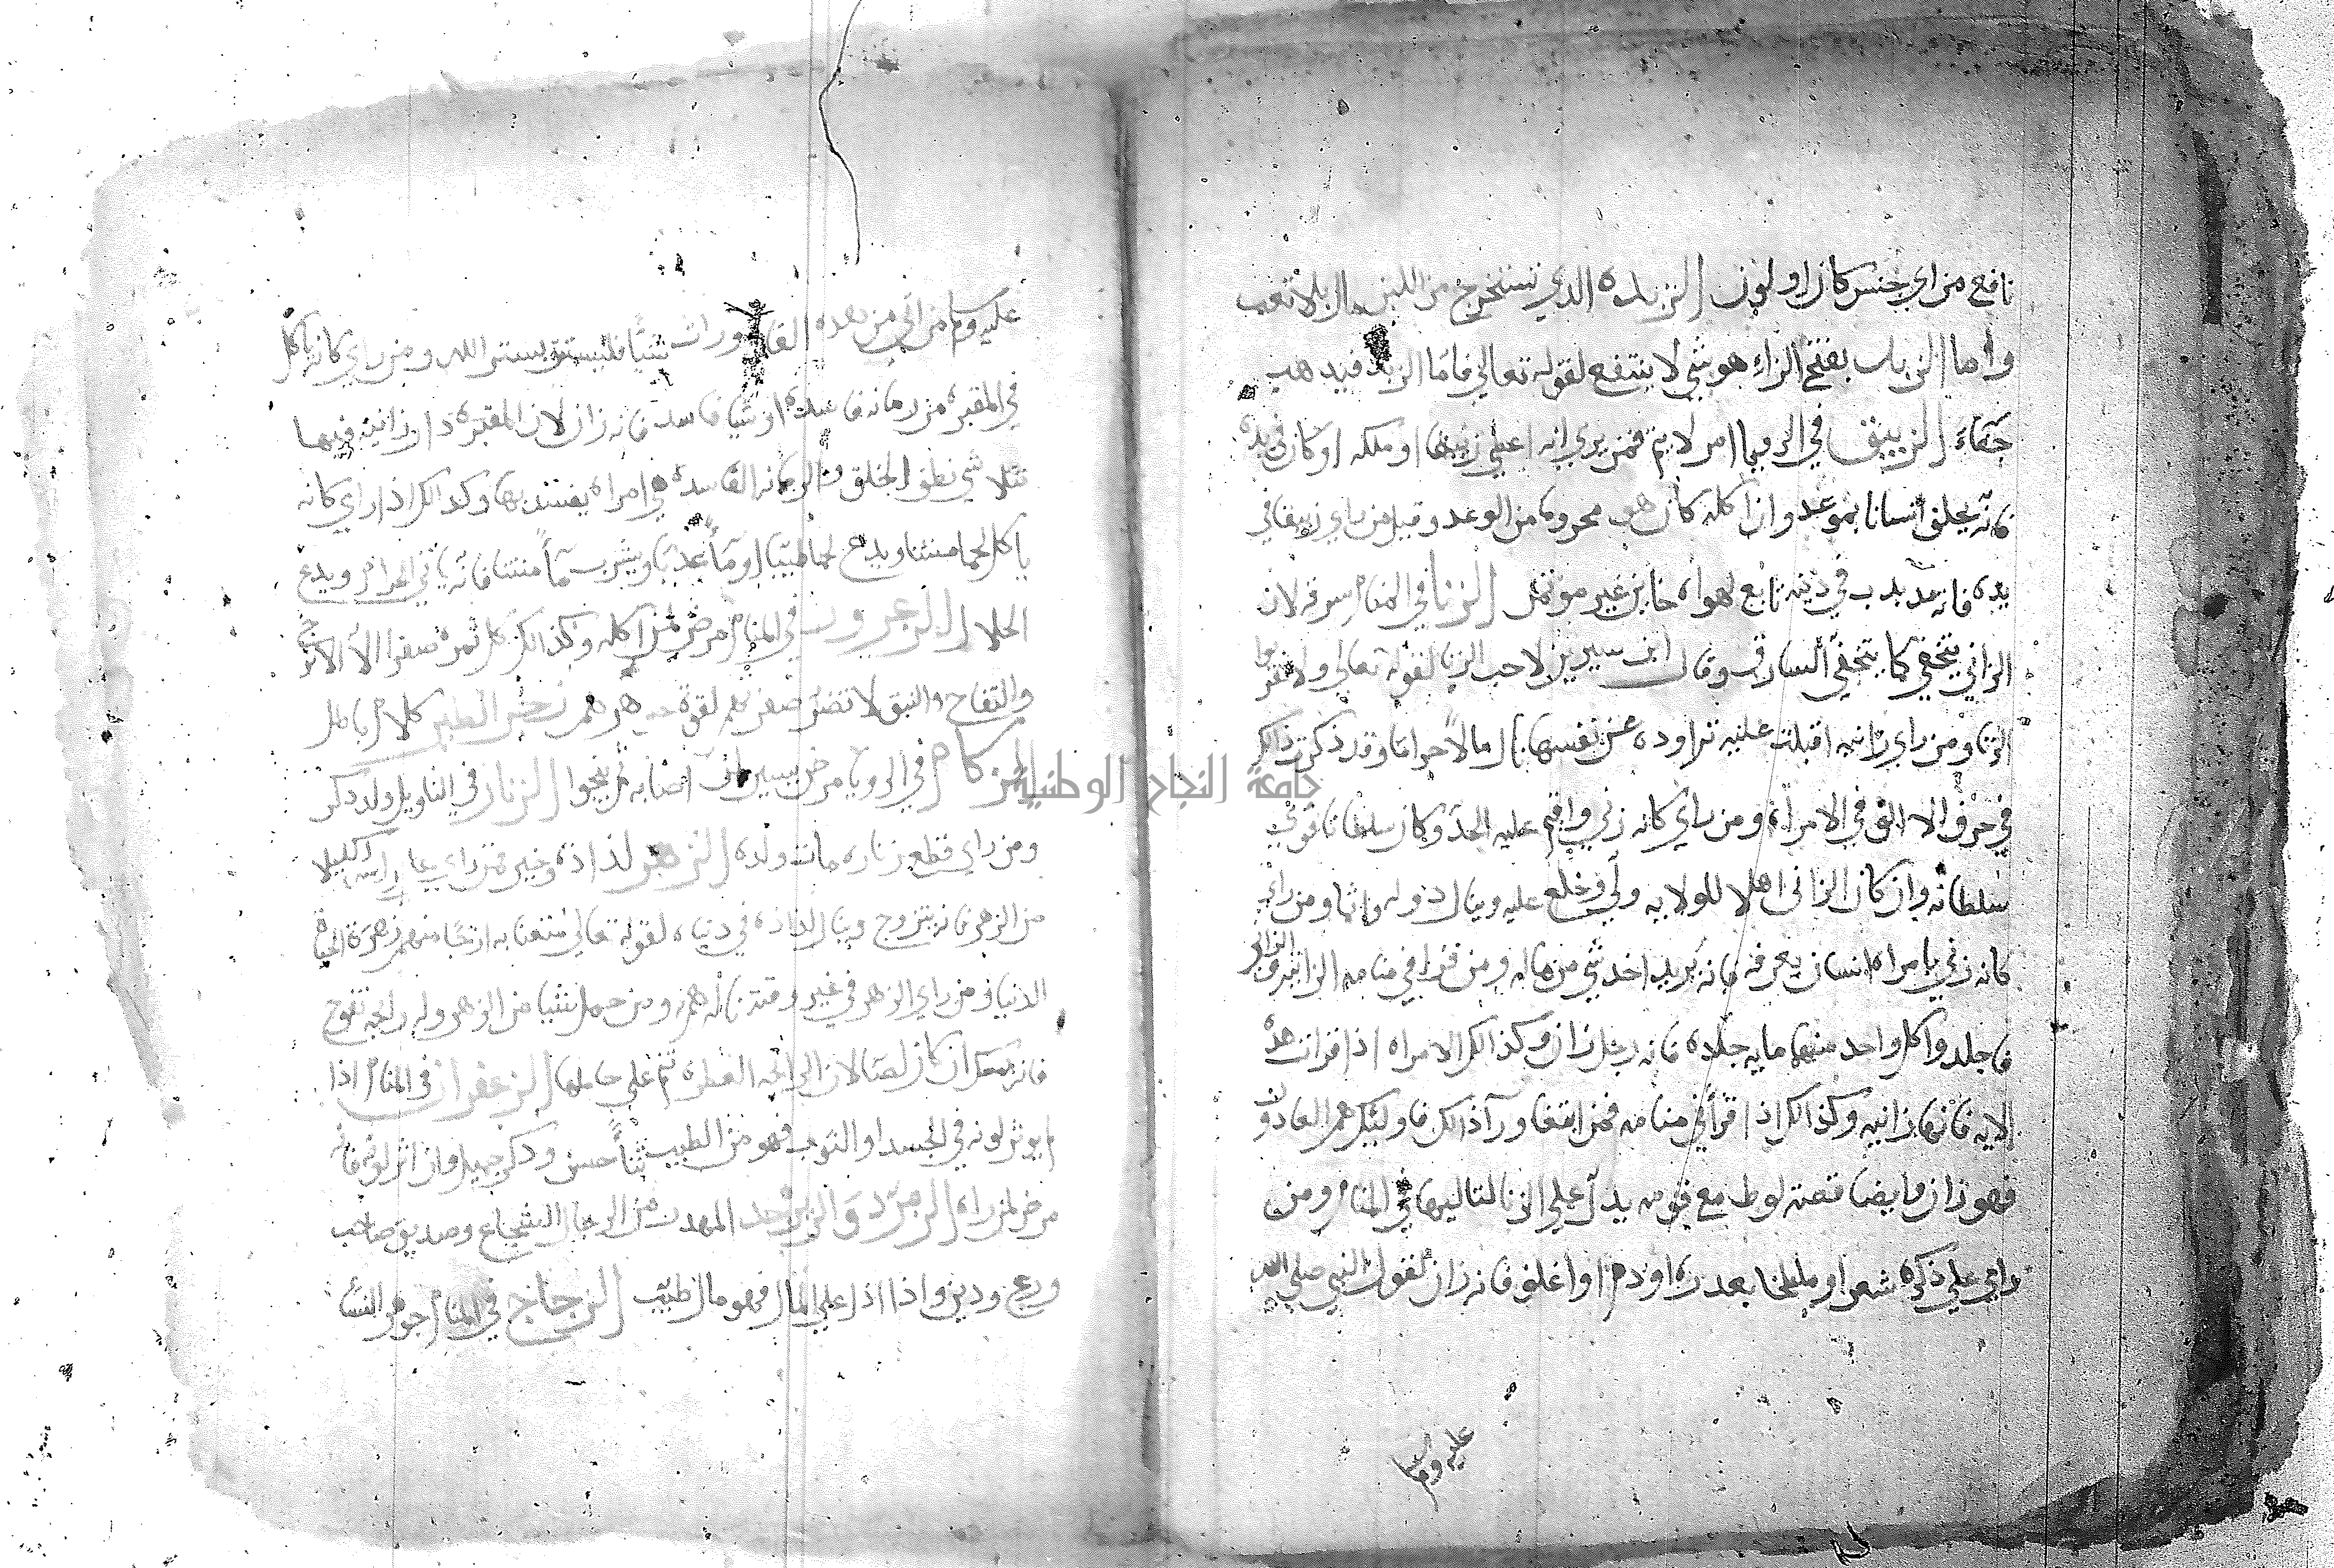 نافع من اي جنس كان او لون الزبده الذي تستخرج من اللبن مال بلا تعب
واما الزباب بفتح الزاء هو شي لا ينتفع لقوله تعالي فاما الزبد فيدهب
جفاء الزيبق في الرويا امر لا يتم فمن يري انه اعطي زيبقا او ملكه او كان في يده
فانه يخلف انسانا بموعد وان اكله كان هو محروما من الوعد وقيل من راي زيبقا في
يده فانه مدبدب في دينه تابع لهواه خاين غير موتمن الزنا في المنام سرقه لان
الزاني يتخفي كما يتخفي السارق وقال ابن سيرين لا احب الزنا لقوله تعالي ولا تقربوا
الزنا ومن راي زانيه اقبلت عليه تراوده عن نفسها نال مالا حراما وقد ذكرت ذالك
في حرف الالف في الامراة ومن راي كانه زني واقيم عليه الحد وكان سلطانا قوي
سلطانه وان كان الزاني اهلا للولايه ولي وخلع عليه وينال دوله واثما ومن راي
كانه زني بامراه انسان يعرفه فانه يريد اخد شي من ماله ومن قرا في منامه الزانيه والزاني
فاجلدوا كل واحد منهما مايه جلده فانه رجل زان وكذالك الامراه اذا قرات هذه
الايه فانها زانيه وكذالك اذا قرا في منامه فمن ابتغا ورآ ذالك فاوليك هم العادون
فهو زان وايضا قصة لوط مع قومه يدل علي الزنا لتاليها في المنام ومن
راي علي ذكره شعرا او ملطخا بعدره او دم او اغلف فانه زان لقول النبي صلي الله
عليه وسلم
عليه وسلم من اتي من هده القادورات شيا فليستتر بستر الله ومن راي كانه ياكل
في المقبره من رمانه فاسده او شيا فاسد فانه زان لان المقبره دار زانيه فيها
تتلاشي نطف الخلق والرمانه الفاسده هي امراه يفسد بها وكدالك اذا راي كانه
ياكل لحما منتنا ويدع لحما طيبا او مآ عدبا ويشرب مآ منتنا فانه ياتي الحرام ويدع
الحلال الزعرور في المنام مرض لمن اكله وكذالك كل ثمرة صفرا الا الاترج
والتفاح والنبق لا تضر صفرتهم لقوة جوهرهم زجر الطير كلام باطل
الزكام في الرويا مرض يسير لمن اصابه ثم ينجوا الزنار في التاويل ولد دكر
ومن راي قطع زناره مات ولده الزهر لذاذه وخير فمن راي علي راسه اكليلا
من الزهر فانه يتزوج وينال لذاذه في دنياه لقوله تعالي متعنا به ازواجا منهم زهرة الحياة
الدنيا ومن راي الزهر في غير وقته ناله هم ومن حمل شيا من الزهر وله رايحه تفوح
فانه يمسك ان كان لصا لان الرايحه العطره تنم علي حاملها الزعفران في المنام اذا
لم يوثر لونه في الجسد او التوب فهو من الطيب ثنآ حسن ودكر جميل وان اثر لونه فانه
مرض لمن راه الزمرد والزبرجد المهدب من الرجال الشجاع وصديق صاحب
ورع ودين واذا دل علي المال فهو مال طيب الزجاج في المنام جوهر النسا
جامعة النجاح الوطنية